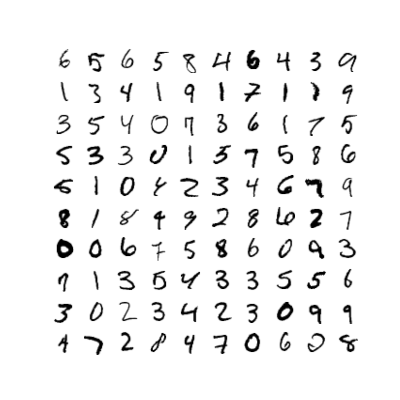 6 5 6 5 8 4 6 4 3 9
1 3 4 1 9 1 7 1 1 9
3 5 4 0 7 3 6 1 7 5
5 3 3 0 1 5 7 5 8 6
5 1 0 4 2 3 4 6 7 9
8 1 8 4 9 2 8 6 2 7
0 0 6 7 5 8 6 0 9 3
7 1 3 5 4 3 3 5 5 6
3 0 2 3 4 2 3 0 9 9
4 7 2 8 4 7 0 6 2 8